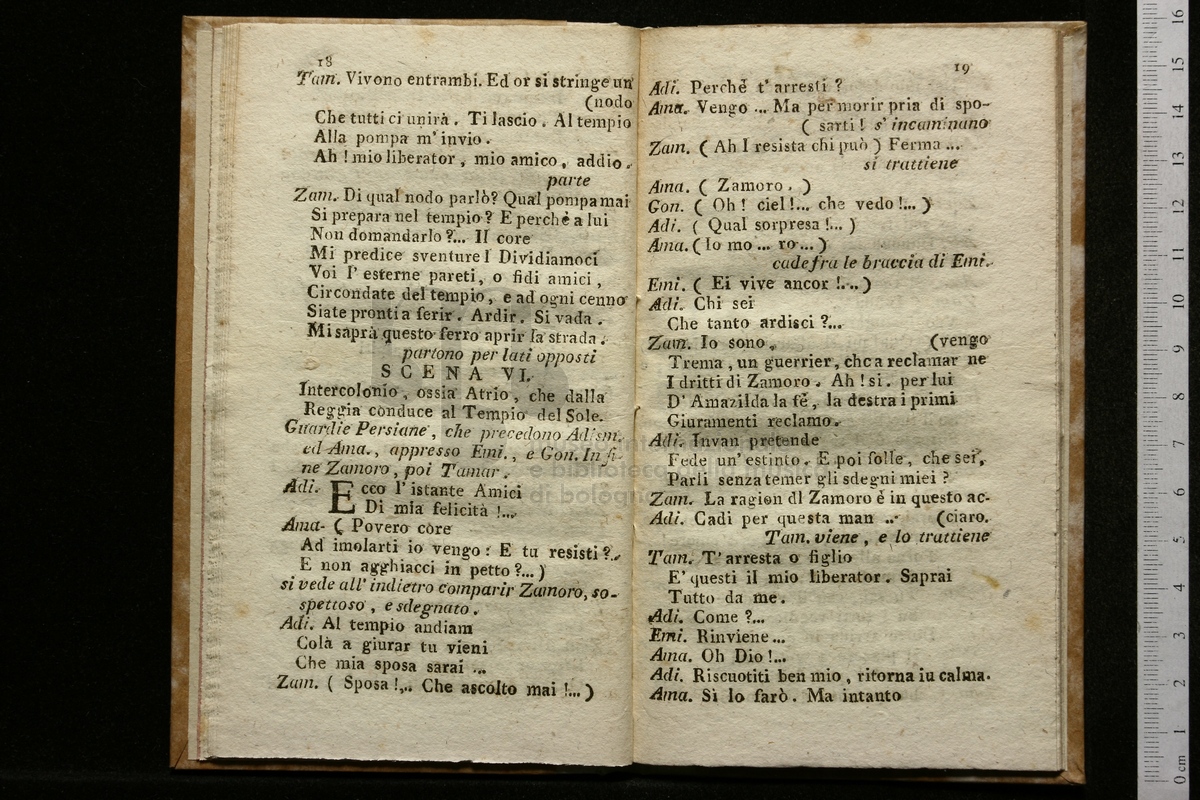 18
Tam. Vivono entrambi. Ed or si stringe un
(nodo
Che tutti ci unirà. Ti lascio. Al tempio
Alla pompa m' invio.
Ah! mio liberator, mio amico, addio.
parte
Zam. Di qual nodo parlò? Qual pompa mai
Si prepara nel tempio? E perchè a lui
Non domandarlo?... Il core
Mi predice sventure! Dividiamoci
Voi l' esterne pareti, o fidi amici,
Circondate del tempio, e ad ogni cenno
Siate pronti a ferir. Ardir. Si vada.
Mi saprà questo ferro aprir la strada.
partono per lati opposti
SCENA VI.
Intercolonio, ossia Atrio, che dalla
Reggia conduce al Tempio del Sole.
Guardie Persiane, che precedono Adism.
ed Ama., appresso Emi., e Gon. In fi-
ne Zamoro, poi Tamar.
Adi. Ecco l' istante Amici
Di mia felicità!...
Ama- ( Povero core
Ad imolarti io vengo: E tu resisti?..
E non agghiacci in petto?...)
si vede all' indietro comparir Zamoro, so-
spettoso, e sdegnato.
Adi. Al tempio andiam
Colà a giurar tu vieni
Che mia sposa sarai ...
Zam. ( Sposa!... Che ascolto mai!...)
19
Adi. Perchè t' arresti?
Ama. Vengo ... Ma per morir pria di spo-
( sarti! s' incaminano
Zam. ( Ah I resista chi può ) Ferma ...
si trattiene
Ama. ( Zamoro. )
Gon. ( Oh! ciel!... che vedo!... )
Adi. ( Qual sorpresa!... )
Ama. ( Io mo ... ro ... )
cade fra le braccia di Emi.
Emi. ( Ei vive ancor!...)
Adi. Chi sei
Che tanto ardisci?...
Zam. Io sono, (vengo
Trema, un guerrier, che a reclamar ne
I dritti di Zamoro. Ah! si. per lui
D' Amazilda la fè, la destra i primi
Giuramenti reclamo.
Adi. Invan pretende
Fede un' estinto. E poi folle, che sei,
Parli senza temer gli sdegni miei?
Zam. La ragion dl Zamoro è in questo ac-
Adi. Cadi per questa man ... (ciaro.
Tam. viene, e lo trattiene
Tam. T' arresta o figlio
E' questi il mio liberator. Saprai
Tutto da me.
Adi. Come?...
Emi. Rinviene ...
Ama. Oh Dio!...
Adi. Riscuotiti ben mio, ritorna iu calma.
Ama. Sì lo farò. Ma intanto